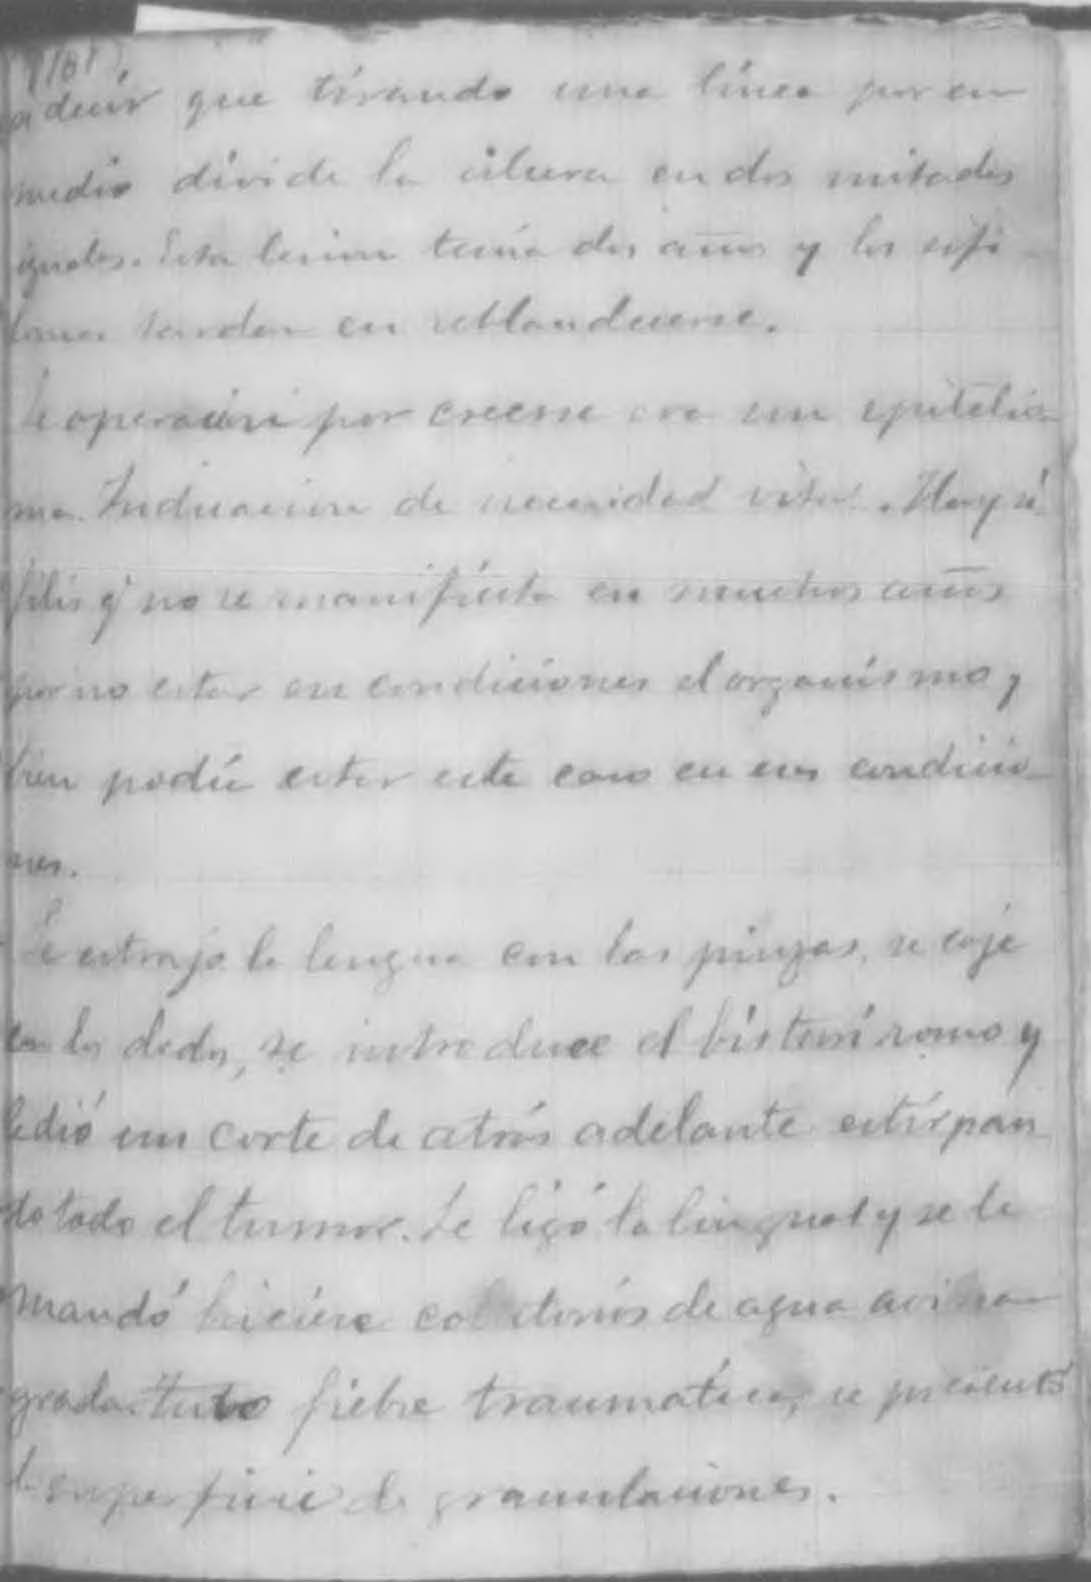 a decir que tirando una línea por en
medio divide la ulcera en dos mitades
iguales. Esta lesion tenia dos años y los sifi
lomas tardan en reblandecerse.
Se operacion por creerse era un epitelio
ma. Indicacion de necesidad vital. Hay si
filis q' no se manifiesta en muchos años
por no estar en condiciones el organismo y
bien podia estar este caso en esas condicio
nes.
Se estrajo la lengua con las pinzas, se coje
con los dedos, se introduce el bisturí romo y
se dió un corte de atrás adelante estirpan
do todo el tumor. Se ligó la lingual y se le
mandó hiciese colutorios de agua avina
grada. tubo fiebre traumatica, se presentó
la superficie de granulaciones.